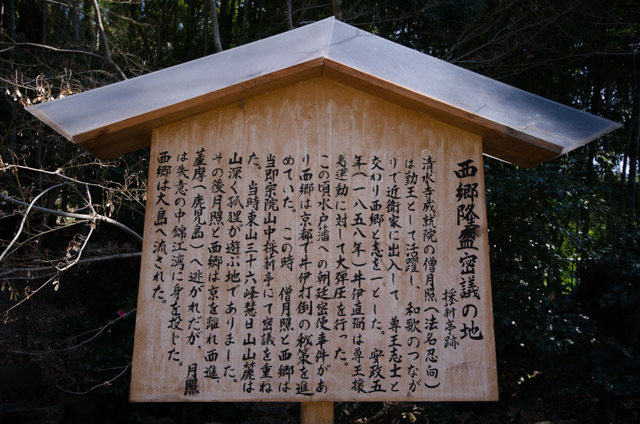 西郷隆盛密議の地
採薪亭跡
清水寺成就院の僧月照(法名忍向)
は勤王として活躍、和歌のつなが
りで近衛家に出入して 尊王志士と
交わり西郷と志を一とした。 安政五
年(一八五八年)井伊直弼は尊王攘
夷運動に対して大弾圧を行った。
この頃水戸藩への朝廷密使事件があ
り西郷は京都で井伊打倒の秘策を進
めていた。 この時 僧月照と西郷は
当即宗院山中採薪亭にて密議を重ね
た。 当時東山三十六峰慧日山山麓は
山深く狐狸が遊ぶ地でありました。
その後月照と西郷は京を離れ西進、
薩摩(鹿児島)へ逃がれだが 月照
は失意の中錦江湾に身を投じた。
西郷は大島へ流された。